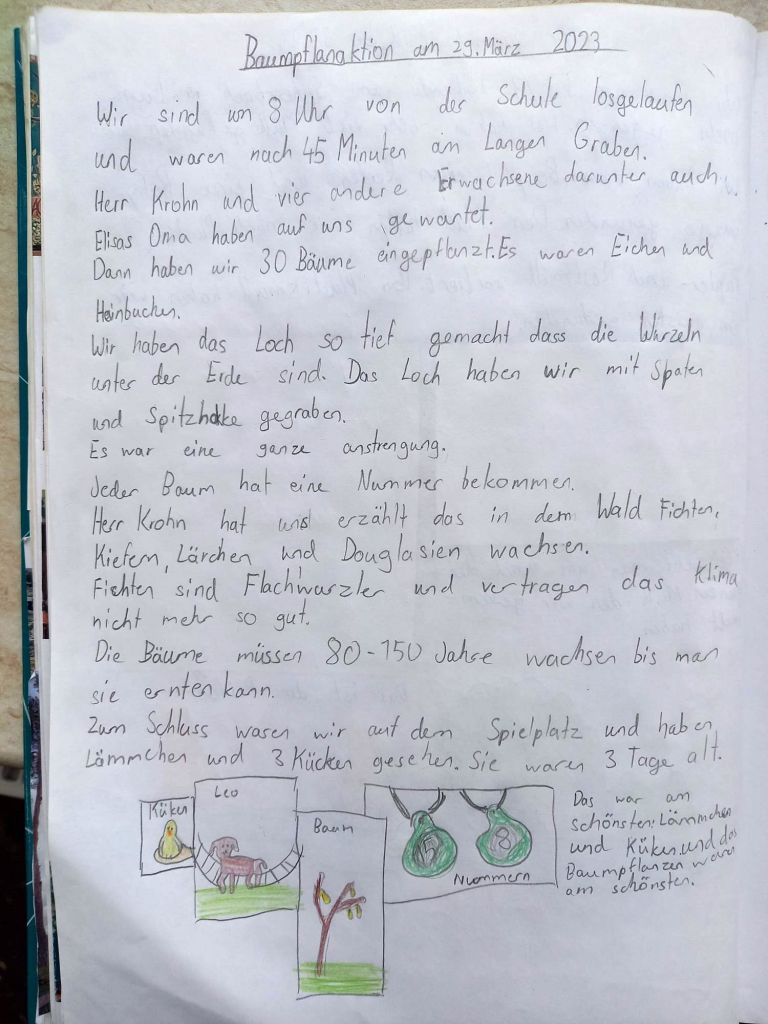 Baumpflanaktion am 29. März 2023
Wir sind um 8 Uhr von der Schule losgelaufen
und waren nach 45 Minuten am Langen Graben.
Herr Krohn und vier andere Erwachsene darunter auch
Elisas Oma haben auf uns gewartet.
Dann haben wir 30 Bäume eingepflanzt. Es waren Eichen und
Heinbuchen.
Wir haben das Loch so tief gemacht dass die Wurzeln
unter der Erde sind. Das Loch haben wir mit Spaten
und Spitzhake gegraben.
Es war eine ganze anstrengung.
Jeder Baum hat eine Nummer bekommen.
Herr Krohn hat uns erzählt das in dem Wald Fichten,
Kiefern, Lärchen und Douglasien wachsen.
Fichten sind Flachwurzler und vertragen das Klima
nicht mehr so gut.
Die Bäume müssen 80-150 Jahre wachsen bis man
sie ernten kann.
Zum Schluss waren wir auf dem Spielplatz und haben
Lämmchen und 3 Kücken gesehen. Sie waren 3 Tage alt.
Küken
Leo
Baum
5
8
Nummern
Das war am
schönsten: Lämmchen
und Küken und das
Baumpflanzen waren
am schönsten.